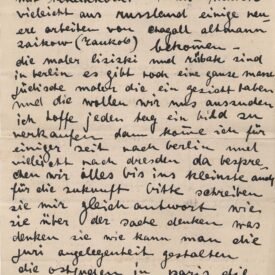 vielleicht aus russland einige neu
ere arbeiten von chagall altmann
zaikow (raukob) bekomen —
die maler lisizki und rübak sind
in berlin es gibt noch eine ganze menge
jüdische maler die ein gesicht haben
und die wollen wir uns aussuchen
ich hoffe jeden tag ein bild zu
verkaufen dann kome ich für
einiger zeit nach berlin und
vielleicht nach dresden da bespre
chen wir alles bis ins kleinste auch
für die zukunft bitte schreiben
sie mir gleich antwort wie
sie über der sache denken was
denken sie wie kann man die
juri angelegenheit gestalten
die in paris die